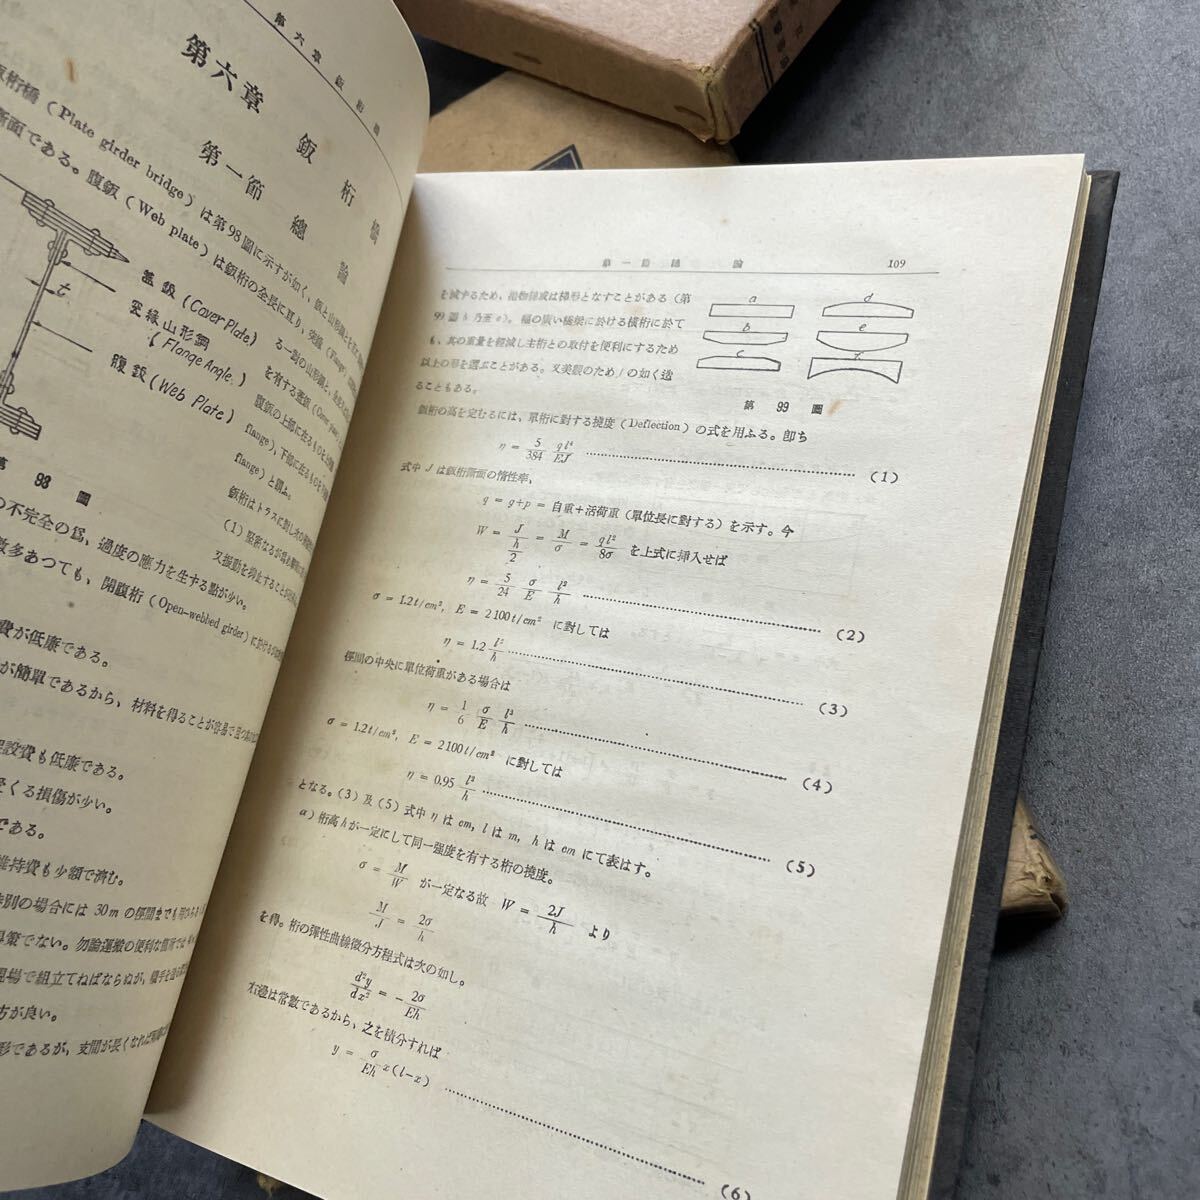 第六章 鈑桁橋
第六章 鈑桁橋
第一節 總論
鈑桁橋(Plate girder bridge)は第98圖に示すが如く、鈑と山形鋼とを
斷面である。腹鈑(Web plate)は鈑桁の全長に亙り、突緣(Flange)
t
蓋鈑(Cover Plate)
突緣山形鋼
(Flange Angle)
腹鈑(Web Plate)
第 98 圖
る一對の山形鋼と、
を有する蓋鈑
腹鈑の上部に在るものを
flange)、下部に在るものを
flange)と謂ふ。
鈑桁はトラスに對し次の
(1)
又振動を抑止すること
の不完全の爲、過度の應力を生ずる點が少い。
數多あつても、開腹桁(Open-webbed girder)に於ける
費が低廉である。
が簡單であるから、材料を得ることが容易で且つ
架設費も低廉である。
くる損傷が少い。
である。
維持費も少額で濟む。
特別の場合には 30m の徑間までも
得策でない。勿論運搬の便利な箇所では
現場で組立てねばならぬが、
方が良い。
形であるが、支間が長くなれば
第一節 總論 109
を減ずるため、拋物線或は梯形となすことがある(第
99圖 b 乃至 e)。幅の廣い橋梁に於ける橫桁に於て
も、其の重量を輕減し主桁との取付を便利にするため
以上の形を選ぶことがある。又美觀のため f の如く造
ることもある。
a d
b e
c f
第 99 圖
鈑桁の高を定むるには、單桁に對する撓度(Deflection)の式を用ふる。卽ち
η = 5/384 ql⁴/EJ (1)
式中 J は鈑桁斷面の惰性率、
q = g+p = 自重+活荷重(單位長に對する)を示す。今
W = J/(h/2) = M/σ = ql²/8σ を上式に挿入せば
η = 5/24 σ/E l²/h (2)
σ = 1.2t/cm², E = 2100t/cm² に對しては
η = 1.2 l²/h (3)
徑間の中央に單位荷重がある場合は
η = 1/6 σ/E l²/h (4)
σ = 1.2t/cm², E = 2100t/cm² に對しては
η = 0.95 l²/h (5)
となる。(3)及(5)式中 η は cm, l は m, h は cm にて表はす。
a)桁高 h が一定にして同一强度を有する桁の撓度。
σ = M/W が一定なる故 W = 2J/h より
M/J = 2σ/h
を得。桁の彈性曲線微分方程式は次の如し。
d²y/dx² = −2σ/Eh
右邊は常數であるから、之を積分すれば
y = σ/Eh x(l−x) (6)